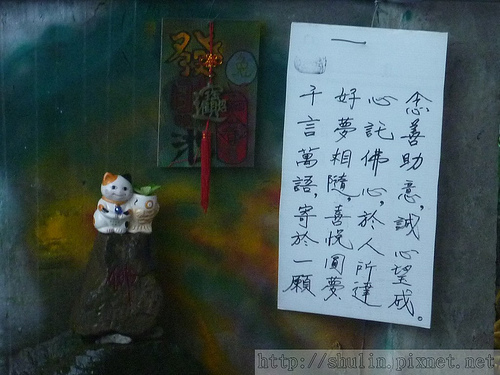 一
千言萬語,寄於一願
好夢相隨,喜悅圓夢
心託佛心,於人所達
念善助意,誠心望成。
佛
http://shulin.pixnet.net